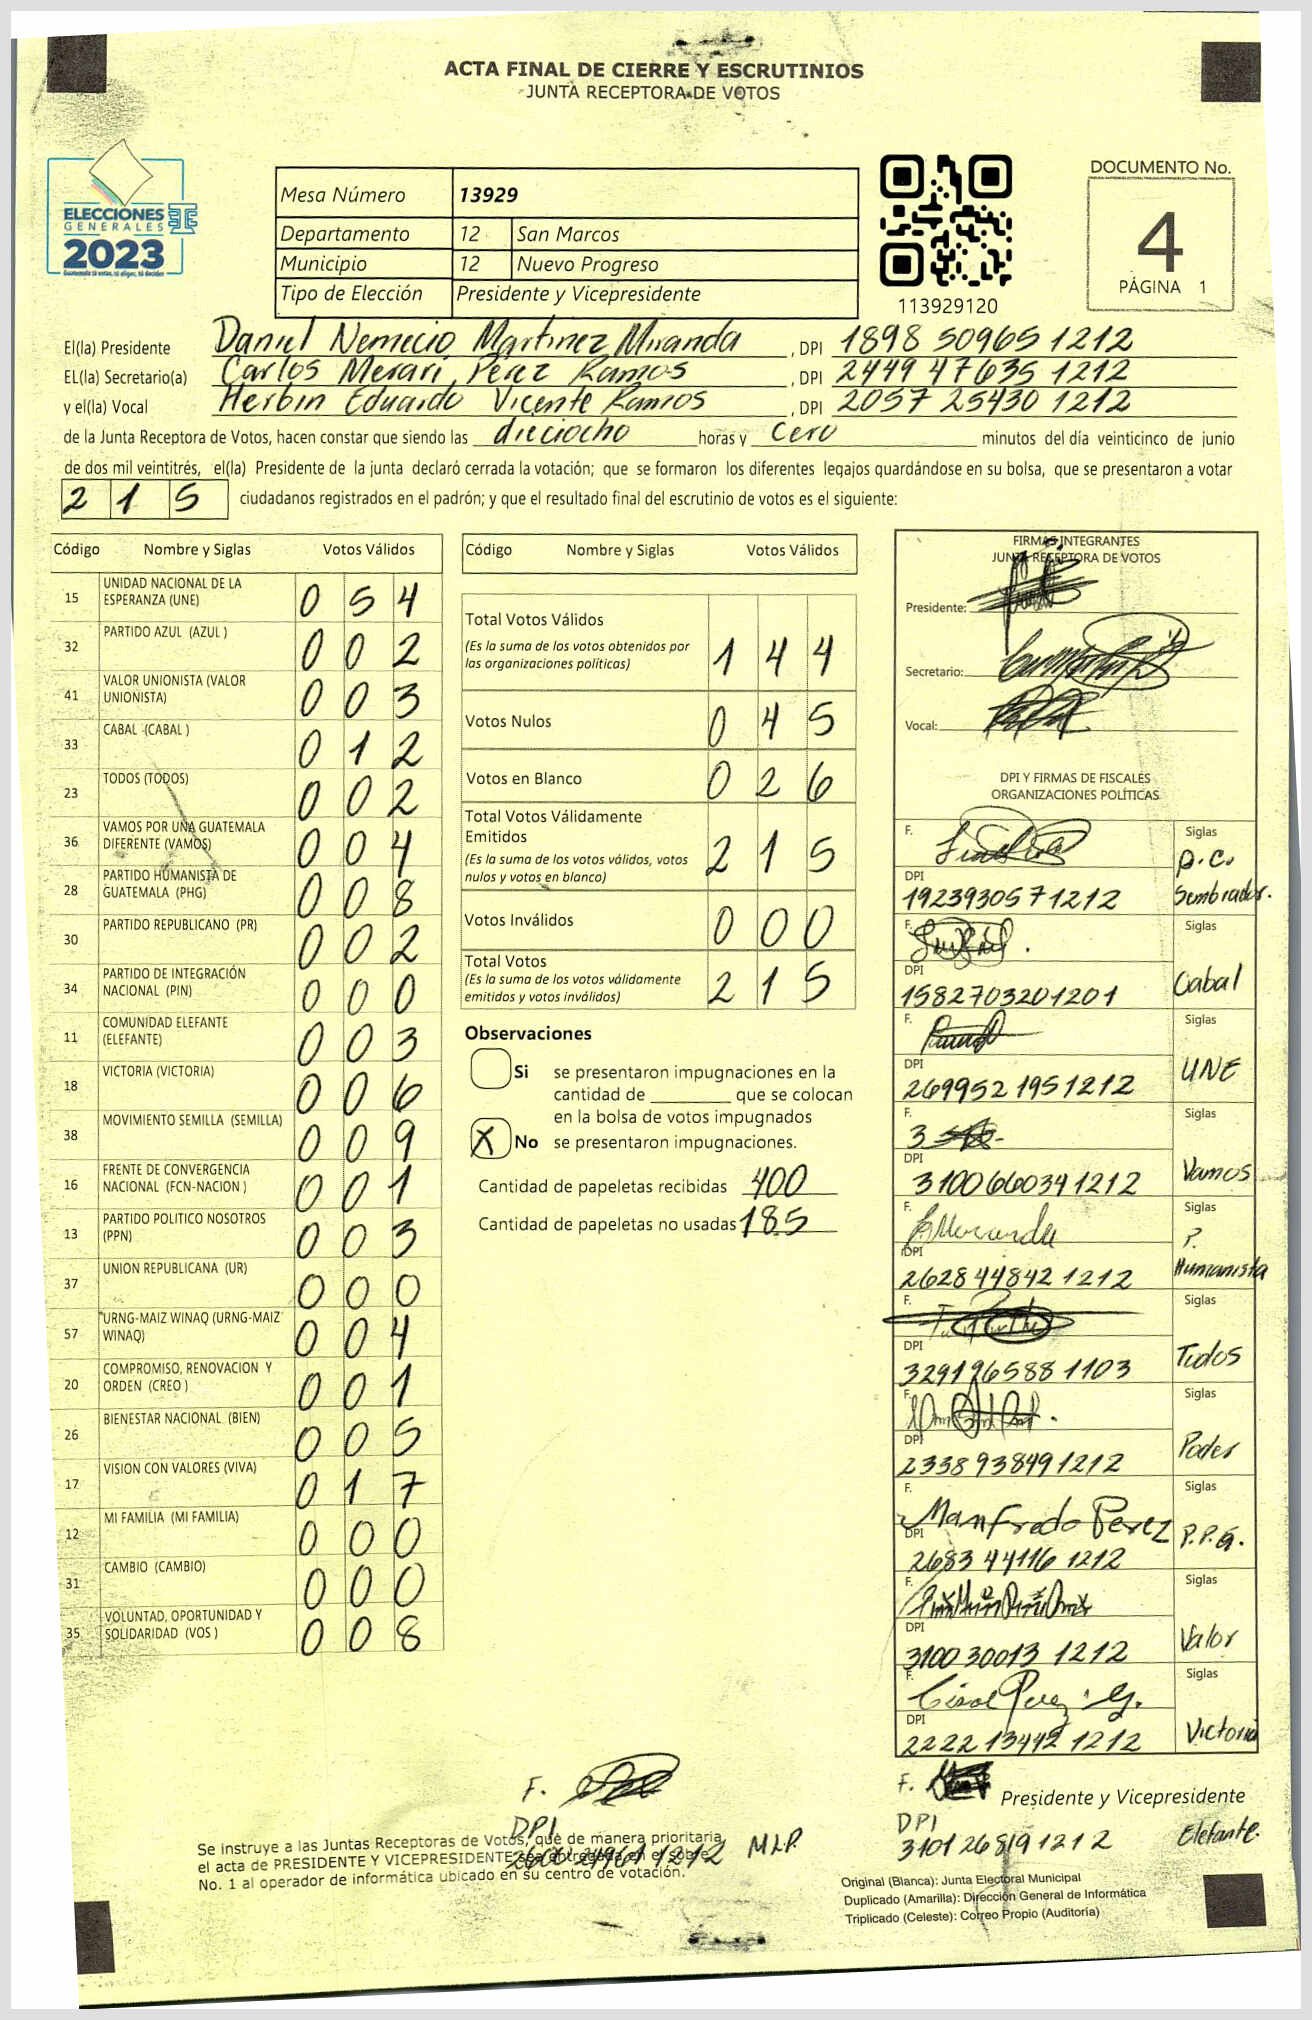 ACTA FINAL DE CIERRE Y ESCRUTINIOS
JUNTA RECEPTORA DE VOTOS
ELECCIONES
GENERALES
2023
Mesa Número 13929
Departamento 12 San Marcos
Municipio 12 Nuevo Progreso
Tipo de Elección Presidente y Vicepresidente
113929120
DOCUMENTO No.
4
PÁGINA 1
El(la) Presidente Daniel Nemecio Martinez Miranda, DPI 1898 50965 1212
EL(la) Secretario(a) Carlos Merari Pérez Ramos, DPI 2449 47635 1212
y el(la) Vocal Herbin Eduardo Vicente Ramos, DPI 2057 25430 1212
de la Junta Receptora de Votos, hacen constar que siendo las dieciocho horas y cero minutos del día veinticinco de junio
de dos mil veintitrés, el(la) Presidente de la junta declaró cerrada la votación; que se formaron los diferentes legajos guardándose en su bolsa, que se presentaron a votar
2 1 5 ciudadanos registrados en el padrón; y que el resultado final del escrutinio de votos es el siguiente:
Código Nombre y Siglas Votos Válidos
15 UNIDAD NACIONAL DE LA ESPERANZA (UNE) 0 5 4
32 PARTIDO AZUL (AZUL ) 0 0 2
41 VALOR UNIONISTA (VALOR UNIONISTA) 0 0 3
33 CABAL (CABAL ) 0 1 2
23 TODOS (TODOS) 0 0 2
36 VAMOS POR UNA GUATEMALA DIFERENTE (VAMOS) 0 0 4
28 PARTIDO HUMANISTA DE GUATEMALA (PHG) 0 0 8
30 PARTIDO REPUBLICANO (PR) 0 0 2
34 PARTIDO DE INTEGRACIÓN NACIONAL (PIN) 0 0 0
11 COMUNIDAD ELEFANTE (ELEFANTE) 0 0 3
18 VICTORIA (VICTORIA) 0 0 6
38 MOVIMIENTO SEMILLA (SEMILLA) 0 0 9
16 FRENTE DE CONVERGENCIA NACIONAL (FCN-NACION ) 0 0 1
13 PARTIDO POLITICO NOSOTROS (PPN) 0 0 3
37 UNION REPUBLICANA (UR) 0 0 0
57 URNG-MAIZ WINAQ (URNG-MAIZ WINAQ) 0 0 4
20 COMPROMISO, RENOVACION Y ORDEN (CREO ) 0 0 1
26 BIENESTAR NACIONAL (BIEN) 0 0 5
17 VISION CON VALORES (VIVA) 0 1 7
12 MI FAMILIA (MI FAMILIA) 0 0 0
31 CAMBIO (CAMBIO) 0 0 0
35 VOLUNTAD, OPORTUNIDAD Y SOLIDARIDAD (VOS ) 0 0 8
Código Nombre y Siglas Votos Válidos
Total Votos Válidos
(Es la suma de los votos obtenidos por
las organizaciones políticas) 1 4 4
Votos Nulos 0 4 5
Votos en Blanco 0 2 6
Total Votos Válidamente
Emitidos
(Es la suma de los votos válidos, votos
nulos y votos en blanco) 2 1 5
Votos Inválidos 0 0 0
Total Votos
(Es la suma de los votos válidamente
emitidos y votos inválidos) 2 1 5
Observaciones
Si se presentaron impugnaciones en la
cantidad de ________ que se colocan
en la bolsa de votos impugnados
X No se presentaron impugnaciones.
Cantidad de papeletas recibidas 400
Cantidad de papeletas no usadas 185
FIRMAS INTEGRANTES
JUNTA RECEPTORA DE VOTOS
Presidente:
Secretario:
Vocal:
DPI Y FIRMAS DE FISCALES
ORGANIZACIONES POLÍTICAS
F. Siglas
P.C.
DPI
1923930571212 Sembrador.
F. Siglas
DPI
1582703201201 Cabal
F. Siglas
DPI
269952 1951212 UNE
F. Siglas
DPI
3100660341212 Vamos
F. Siglas
DPI P.
262844842 1212 Humanista
F. Siglas
DPI
329196588 1103 Todos
F. Siglas
DPI
2338938491212 Poder
F. Siglas
Manfredo Perez
DPI
2683 44116 1212 P.P.G.
F. Siglas
DPI
3100 30013 1212 Valor
F. Siglas
DPI
2222 13442 1212 Victoria
F.
Presidente y Vicepresidente
DPI
3101 26819 1212 Elefante.
F.
DPI
M.L.P.
Se instruye a las Juntas Receptoras de Votos, que de manera prioritaria,
el acta de PRESIDENTE Y VICEPRESIDENTE sea entregada en el sobre
No. 1 al operador de informática ubicado en su centro de votación.
Original (Blanca): Junta Electoral Municipal
Duplicado (Amarilla): Dirección General de Informática
Triplicado (Celeste): Correo Propio (Auditoría)